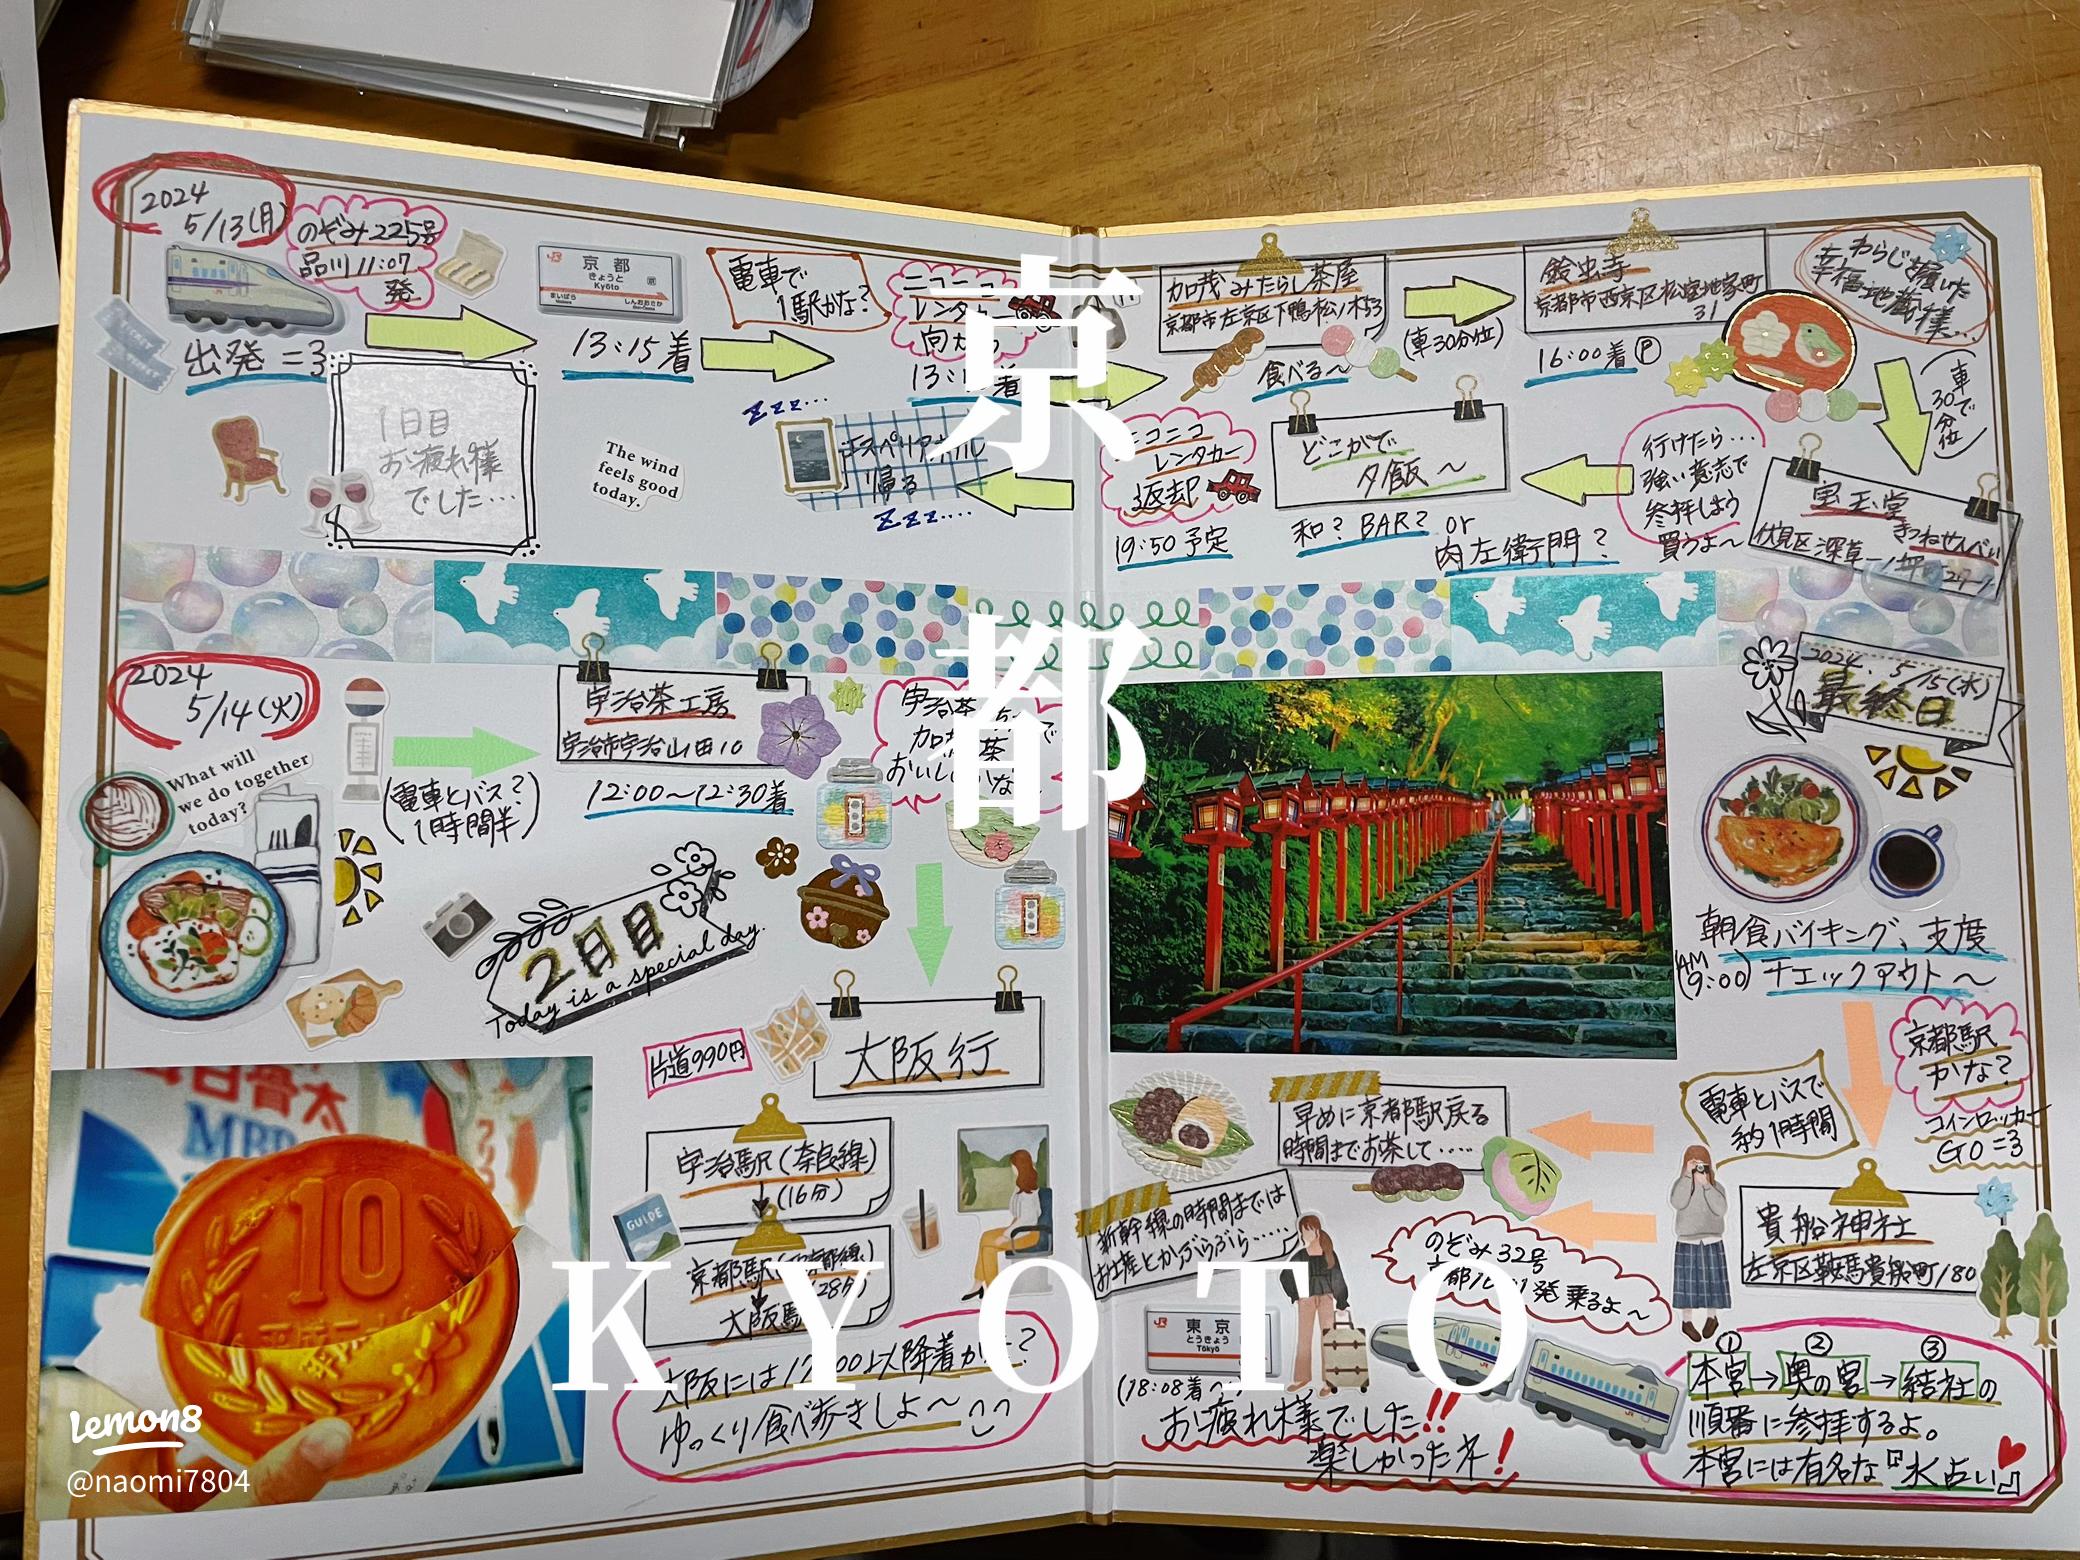 2024
5/13(月)
のぞみ225号
品川11:07
発
出発=3
JR
京都
きょうと
Kyōto
まいばら
しんおおさか
13:15着
電車で
1駅かな?
ニコニコ
レンタカー
加茂みたらし茶屋
京都市左京区下鴨松ノ木53
食べる〜
(車30分位)
鈴虫寺
京都市西京区松室地家町
31
16:00着Ⓟ
わらじ履いた
幸福地蔵様…
車で
30分位
宝玉堂
きつねせんべい
伏見区深草一ノ坪町27-
行けたら…
強い意志で
参拝しよう
買うよ〜
どこかで
夕飯〜
和?BAR? or
肉左衛門?
ニコニコ
レンタカー
返却
19:50予定
zzz…
帰る
zzz….
The wind
feels good
today.
1日目
お疲れ様
でした…
京
都
2024
5/14(火)
What will
we do together
today?
(電車とバス?
1時間半)
宇治茶工房
宇治市宇治山田10
12:00〜12:30着
宇治茶
2日目
Today is a special day.
片道990円
大阪行
宇治駅(奈良線)
(16分)
京都駅
28分)
GUIDE
大阪には
以降着
ゆっくり食べ歩きしよ〜
10
2024. 5/15(水)
最終日
朝食バイキング、支度
(AM9:00)チェックアウト〜
京都駅
かな?
コインロッカー
GO=3
電車とバスで
約1時間
貴船神社
左京区鞍馬貴船町180
①本宮→②奥の宮→③結社の
順番に参拝するよ。
本宮には有名な『水占い』
早めに京都駅戻る
時間までお茶して….
新幹線の時間までは
お土産とかぶらぶら……
のぞみ32号
発乗るよ〜
JR
東京
とうきょう
Tōkyō
(18:08着
お疲れ様でした!!
楽しかったネ!
KYOTO
Lemon8
@naomi7804